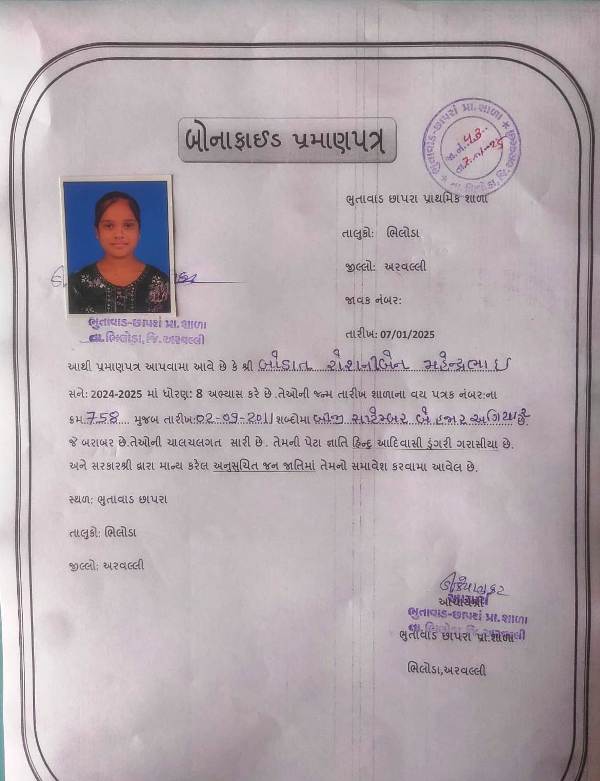 બોનાફાઈડ પ્રમાણપત્ર
ભુતાવાડ-છાપરા પ્રા. શાળા
જા.નં. 43
તા. ભિલોડા, જિ. અરવલ્લી
ભુતાવાડ છાપરા પ્રાથમિક શાળા
તાલુકો: ભિલોડા
જીલ્લો: અરવલ્લી
જાવક નંબર:
તારીખ: 07/01/2025
ભુતાવાડ-છાપરા પ્રા. શાળા
તા. ભિલોડા, જિ. અરવલ્લી
આથી પ્રમાણપત્ર આપવામા આવે છે કે શ્રી બોડાત રોશનીબેન મહેન્દ્રભાઇ
સને: 2024-2025 માં ધોરણ: 8 અભ્યાસ કરે છે .તેઓની જન્મ તારીખ શાળાના વય પત્રક નંબર:ના
ક્રમ 758 મુજબ તારીખ:02-09-2011 શબ્દોમા બીજી સપ્ટેમ્બર બે હજાર અગિયાર છે.
જે બરાબર છે.તેઓની ચાલચલગત સારી છે . તેમની પેટા જ્ઞાતિ હિન્દુ આદિવાસી ડુંગરી ગરાસીયા છે.
અને સરકારશ્રી દ્રારા માન્ય કરેલ અનુસુચિત જન જાતિમાં તેમનો સમાવેશ કરવામા આવેલ છે.
સ્થળ: ભુતાવાડ છાપરા
તાલુકો: ભિલોડા
જીલ્લો: અરવલ્લી
આચાર્ય
આચાર્યશ્રી
ભુતાવાડ-છાપરા પ્રા. શાળા
તા. ભિલોડા, જિ. અરવલ્લી
ભુતાવાડ છાપરા પ્રા.શાળા
ભિલોડા,અરવલ્લી